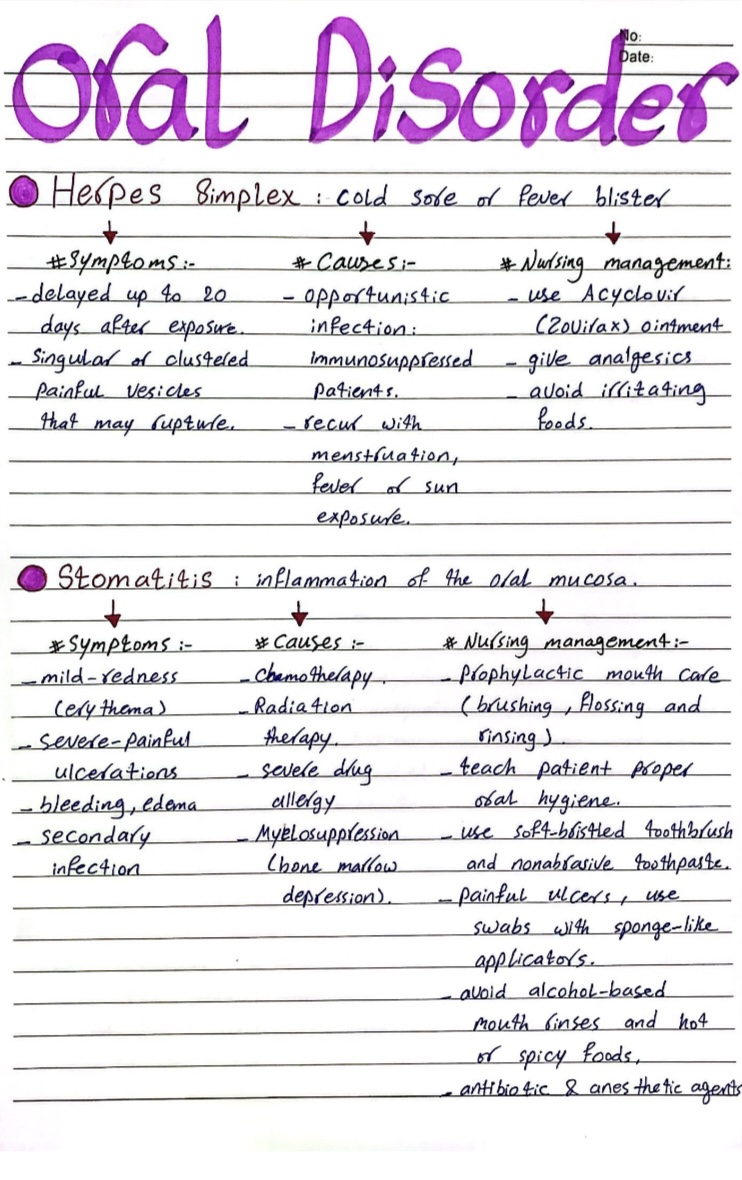 No:
Date:
Oral Disorder
Herpes Simplex : cold sore or fever blister
#Symptoms:-
- delayed up to 20
days after exposure.
- Singular or clustered
painful vesicles
that may rupture.
# Causes:-
- opportunistic
infection:
immunosuppressed
patients.
- recur with
menstruation,
fever or sun
exposure.
# Nursing management:
- use Acyclovir
(Zovirax) ointment
- give analgesics
- avoid irritating
foods.
Stomatitis : inflammation of the oral mucosa.
# Symptoms :-
- mild-redness
(erythema)
- severe-painful
ulcerations
- bleeding, edema
- secondary
infection
# Causes :-
- Chemotherapy.
- Radiation
therapy.
- severe drug
allergy
- Myelosuppression
(bone marrow
depression).
# Nursing management:-
- Prophylactic mouth care
(brushing, flossing and
rinsing).
- teach patient proper
oral hygiene.
- use soft-bristled toothbrush
and nonabrasive toothpaste.
- painful ulcers, use
swabs with sponge-like
applicators.
- avoid alcohol-based
mouth rinses and hot
or spicy foods,
- antibiotic & anesthetic agents